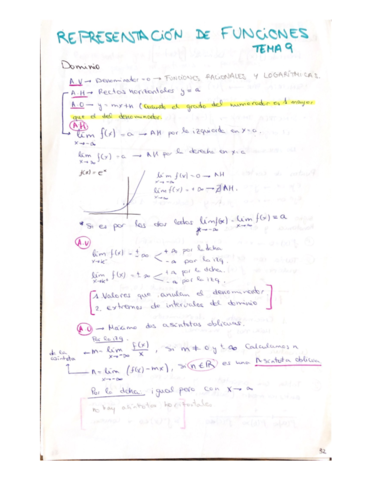 REPRESENTACIÓN DE FUNCIONES
TEMA 9
Dominio
A.V → Denominador = 0 → FUNCIONES RACIONALES Y LOGARÍTMICAS
A.H → Rectas horizontales y = a
A.O → y = mx+n (Cuando el grado del numerador es 1 mayor
que el del denominador.
A.H
lim f(x) = a → AH por la izquierda en y = a.
x→-∞
lim f(x) = a → AH por la derecha en y = a
x→∞
f(x) = e^x
lim f(x) = 0 → AH
x→-∞
lim f(x) = +∞ → ∄ AH.
x→∞
* Si es por los dos lados lim f(x) = lim f(x) = a
A.V
lim f(x) = ±∞ < +∞ por la dcha
-∞ por la izq.
lim f(x) = ±∞ < +∞ por la dcha.
-∞ por la izq.
1. Valores que anulan el denominador
2. Extremos de intervalos del dominio
A.O → Máximo dos asíntotas oblicuas.
Por la izq.
m = lim f(x)/x, si m ≠ 0 y ± ∞ Calculamos n
x→-∞
de la asíntota
n = lim (f(x) - mx), si n ∈ ℝ es una Asíntota oblicua
x→-∞
Por la dcha: igual pero con x → ∞
hay asíntotas horizontales